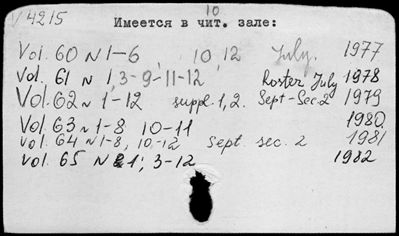 V 4215
10
Имеется в чит. зале:
Vol. 60 N 1-6, 10, 12 July. 1977
Vol. 61 N 1, 3-9-11-12 Roster July 1978
Vol. 62 N 1-12 suppl. 1, 2. Sept-Sec. 2 1979
Vol. 63 N 1-8 10-11 1980
Vol. 64 N 1-8, 10-12 Sept. sec. 2 1981
Vol. 65 N 1, 3-12 1982